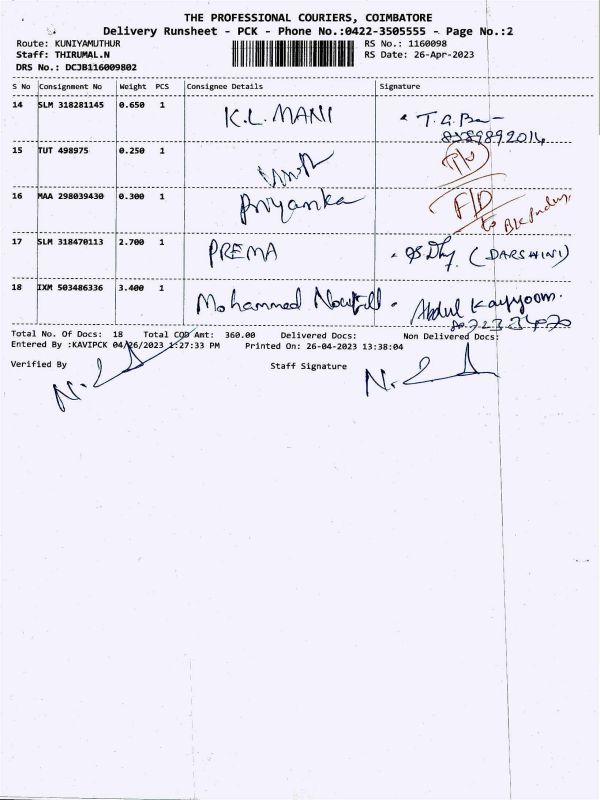 THE PROFESSIONAL COURIERS, COIMBATORE
Delivery Runsheet - PCK - Phone No.:0422-3505555 - Page No.:2
Route: KUNIYAMUTHUR RS No.: 1160098
Staff: THIRUMAL.N RS Date: 26-Apr-2023
DRS No.: DCJB116009802
S No Consignment No Weight PCS Consignee Details Signature
14 SLM 318281145 0.650 1 K.L. MANI
15 TUT 498975 0.250 1
16 MAA 298039430 0.300 1 Priyanka F/D to
17 SLM 318470113 2.700 1 PREMA (DARSHINI)
18 IXM 503486336 3.400 1 Mohammed Abdul Kayyoom.
Total No. Of Docs: 18 Total COD Amt: 360.00 Delivered Docs: Non Delivered Docs:
Entered By :KAVIPCK 04/26/2023 1:27:33 PM Printed On: 26-04-2023 13:38:04
Verified By Staff Signature